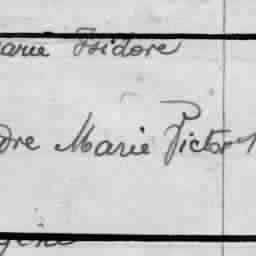 arie Isidore
dre Marie Victor
gène